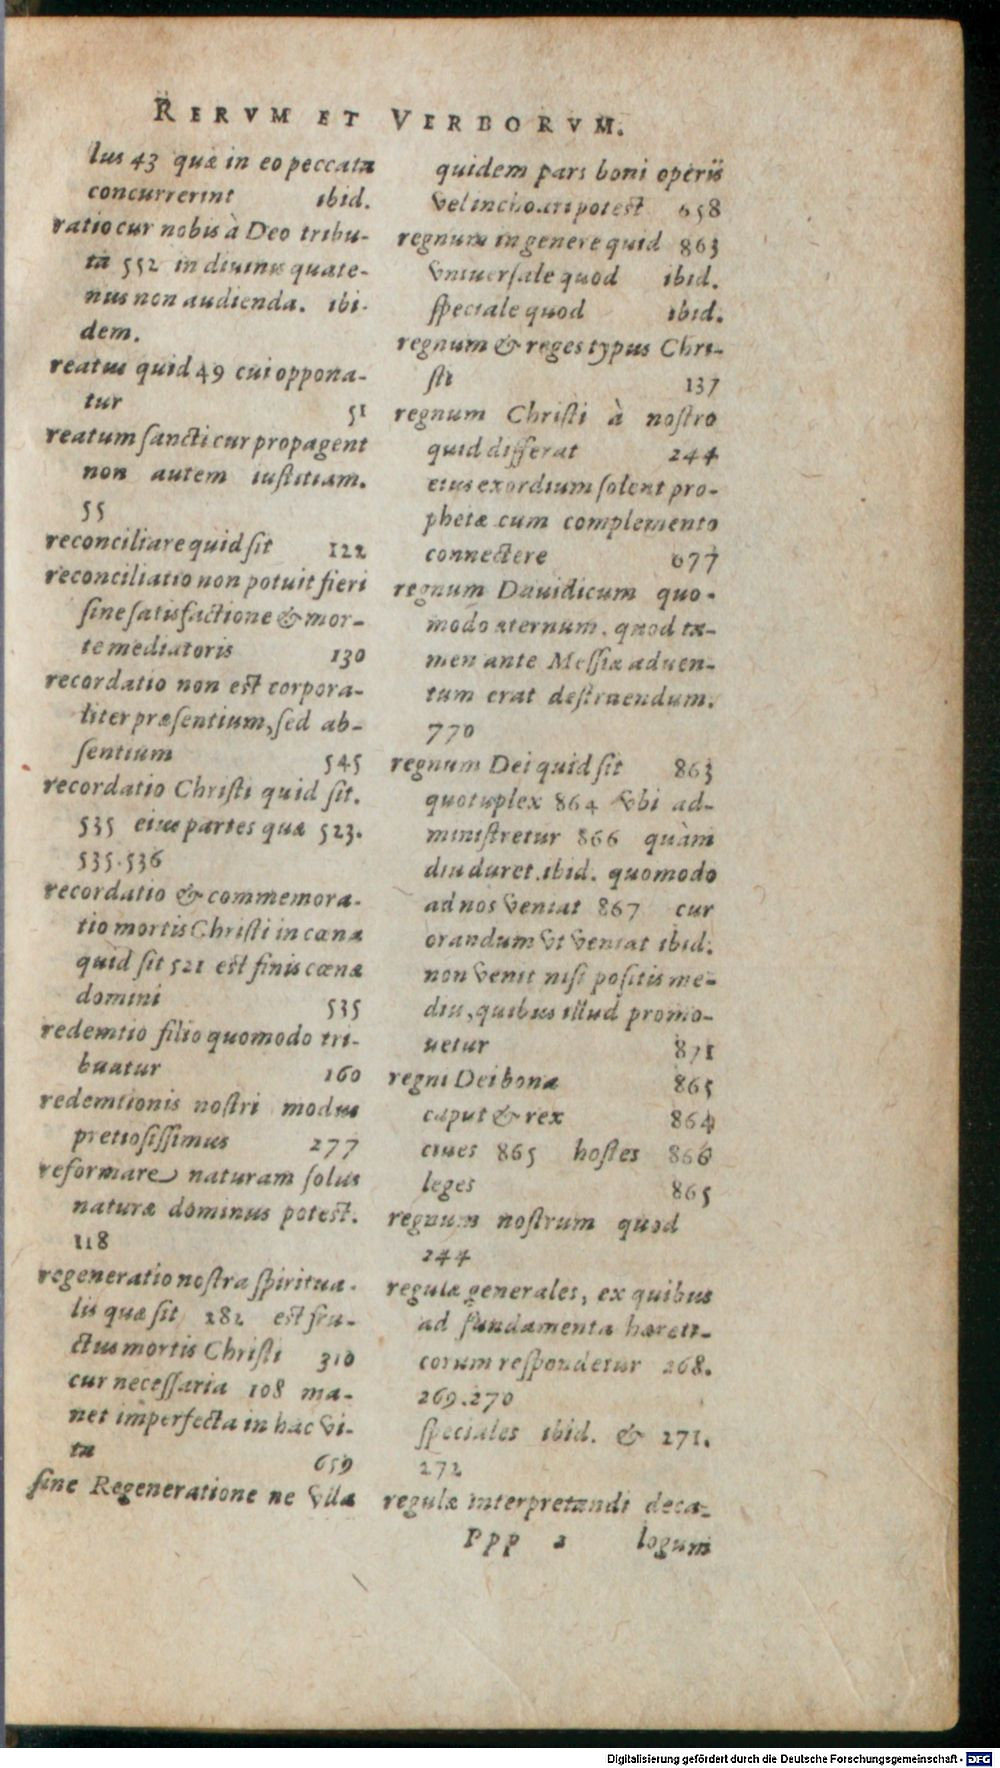 RERVM ET VERBORVM.
lus 43 quæ in eo peccata
concurrerint ibid.
ratio cur nobis à Deo tribu-
ta 552 in diuinis quate-
nus non audienda. ibi-
dem.
reatus quid 49 cui oppona-
tur 51
reatum sancti cur propagent
non autem iustitiam.
55
reconciliare quid sit 122
reconciliatio non potuit fieri
sine satisfactione & mor-
te mediatoris 130
recordatio non est corpora-
liter præsentium, sed ab-
sentium 545
recordatio Christi quid sit.
535 eius partes quæ 523.
535.536
recordatio & commemora-
tio mortis Christi in cœna
quid sit 521 est finis cœnæ
domini 535
redemtio filio quomodo tri-
buatur 160
redemtionis nostri modus
pretiosissimus 277
reformare naturam solus
naturæ dominus potest.
118
regeneratio nostra spiritua-
lis quæ sit 282 est fru-
ctus mortis Christi 310
cur necessaria 108 ma-
net imperfecta in hac vi-
ta 659
sine Regeneratione ne vlla
quidem pars boni operis
vel inchoari potest 658
regnum in genere quid 863
vniuersale quod ibid.
speciale quod ibid.
regnum & reges typus Chri-
sti 137
regnum Christi à nostro
quid differat 244
eius exordium solent pro-
phetæ cum complemento
connectere 677
regnum Dauidicum quo-
modo æternum. quod ta-
men ante Messiæ aduen-
tum erat destruendum.
770
regnum Dei quid sit 863
quotuplex 864 vbi ad-
ministretur 866 quàm
diu duret. ibid. quomodo
ad nos veniat 867 cur
orandum vt veniat ibid.
non venit nisi positis me-
diis, quibus illud promo-
uetur 871
regni Dei bona 865
caput & rex 864
ciues 865 hostes 866
leges 865
regnum nostrum quod
244
regulæ generales, ex quibus
ad fundamenta hæreti-
corum respondetur 268.
269.270
speciales ibid. & 271.
272
regulæ interpretandi deca-
Ppp 2 logum
Digitalisierung gefördert durch die Deutsche Forschungsgemeinschaft - DFG